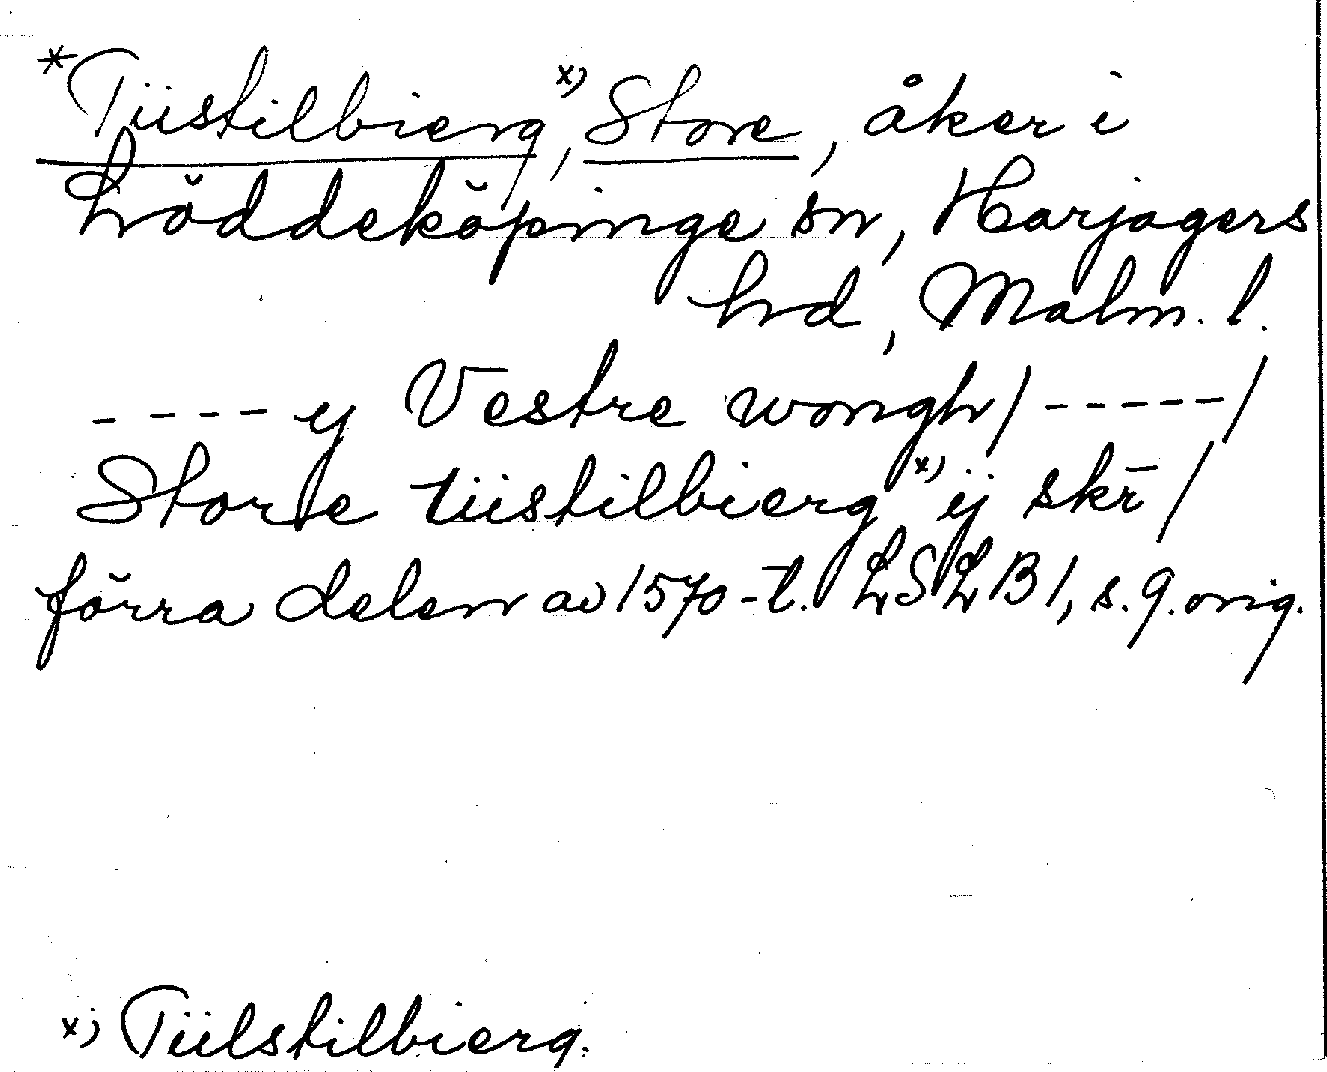 *Tiistilbierg x), Store, åker i
Löddeköpinge sn, Harjagers
hd, Malm. l.
- - - - ij Vestre wongh / - - - - - /
Store tiistilbierg x) ij skr̄ /
förra delen av 1570-t. LSLB 1, s. 9. orig.
x) Tiilstilbierg.